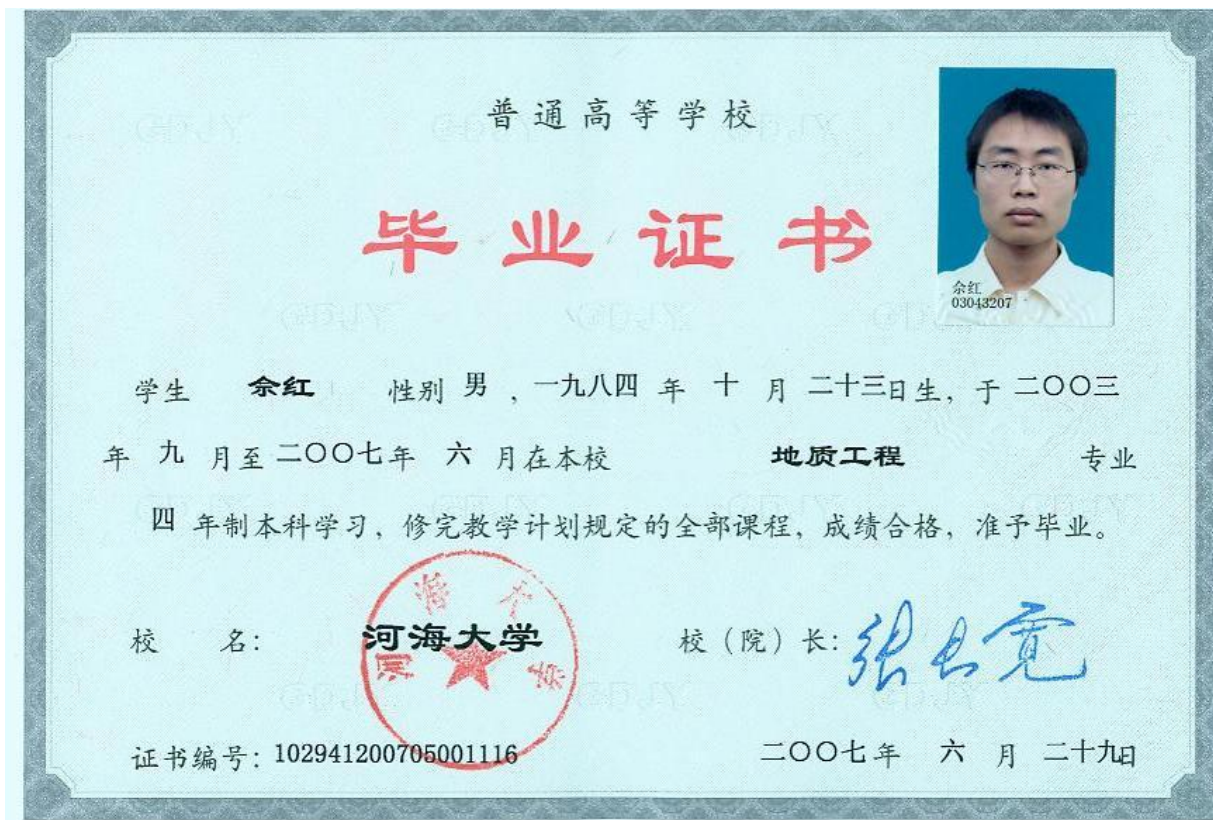 普通高等学校
毕业证书
佘红
03043207
学生 佘红 性别 男 , 一九八四 年 十 月 二十三日生, 于 二〇〇三
年 九 月至 二〇〇七年 六 月在本校 地质工程 专业
四 年制本科学习, 修完教学计划规定的全部课程, 成绩合格, 准予毕业。
校 名: 河海大学 校（院）长: 张长宽
河海大学
证书编号: 102941200705001116 二〇〇七年 六 月 二十九日